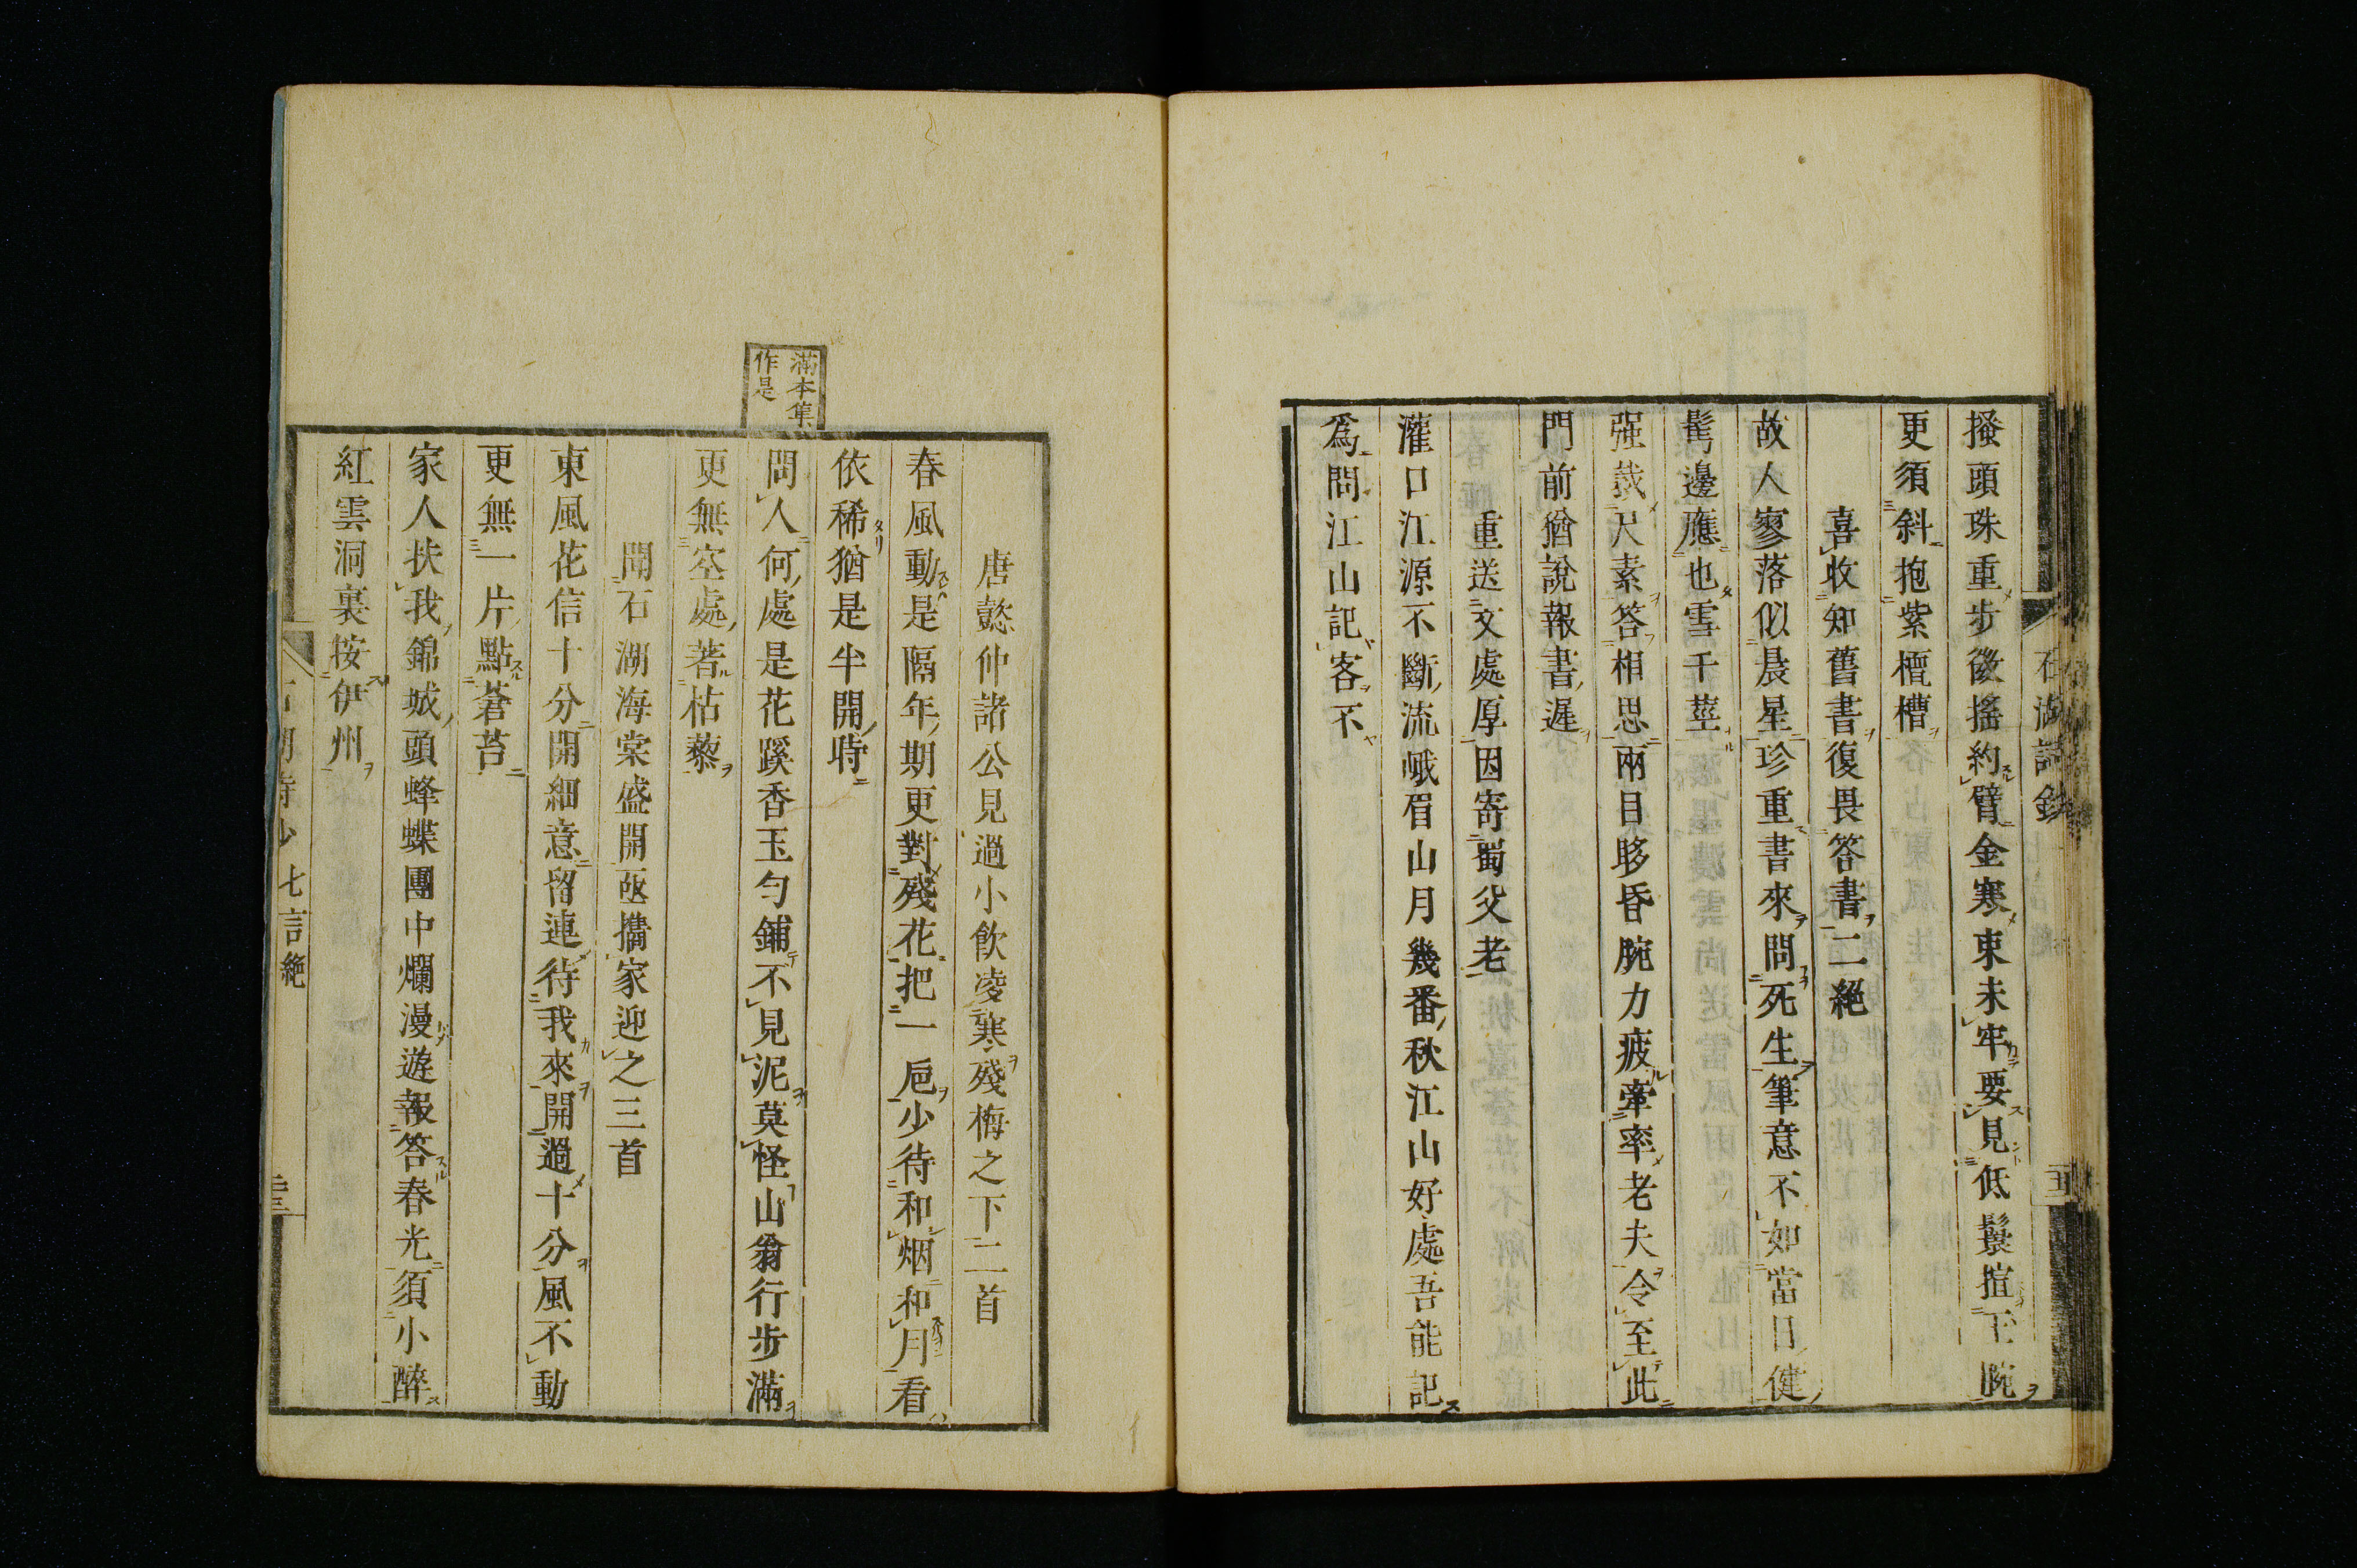 石湖詩鈔
搔頭珠重步徵搖約臂金寒束未牢要見低鬟揎玉腕
更須斜抱紫檀槽
喜收知舊書復畏答書二絕
故人寥落似晨星珍重書來問死生筆意不如當日健
髩邊應也雪千莖
强裁尺素答相思兩目眵昏腕力疲牽率老夫令至此
門前猶說報書遲
重送文處厚因寄蜀父老
灌口江源不斷流峨眉山月幾番秋江山好處吾能記
爲問江山記客不
滿本集
作是
唐懿仲諸公見過小飲凌寒殘梅之下二首
春風動是隔年期更對殘花把一巵少待和烟和月看
依稀猶是半開時
問人何處是花蹊香玉勻鋪不見泥莫怪山翁行步滿
更無空處著枯藜
聞石湖海棠盛開亟攜家迎之三首
東風花信十分開細意留連待我來開過十分風不動
更無一片點蒼苔
家人扶我錦城頭蜂蝶團中爛漫遊報答春光須小醉
紅雲洞裏按伊州
七言絕